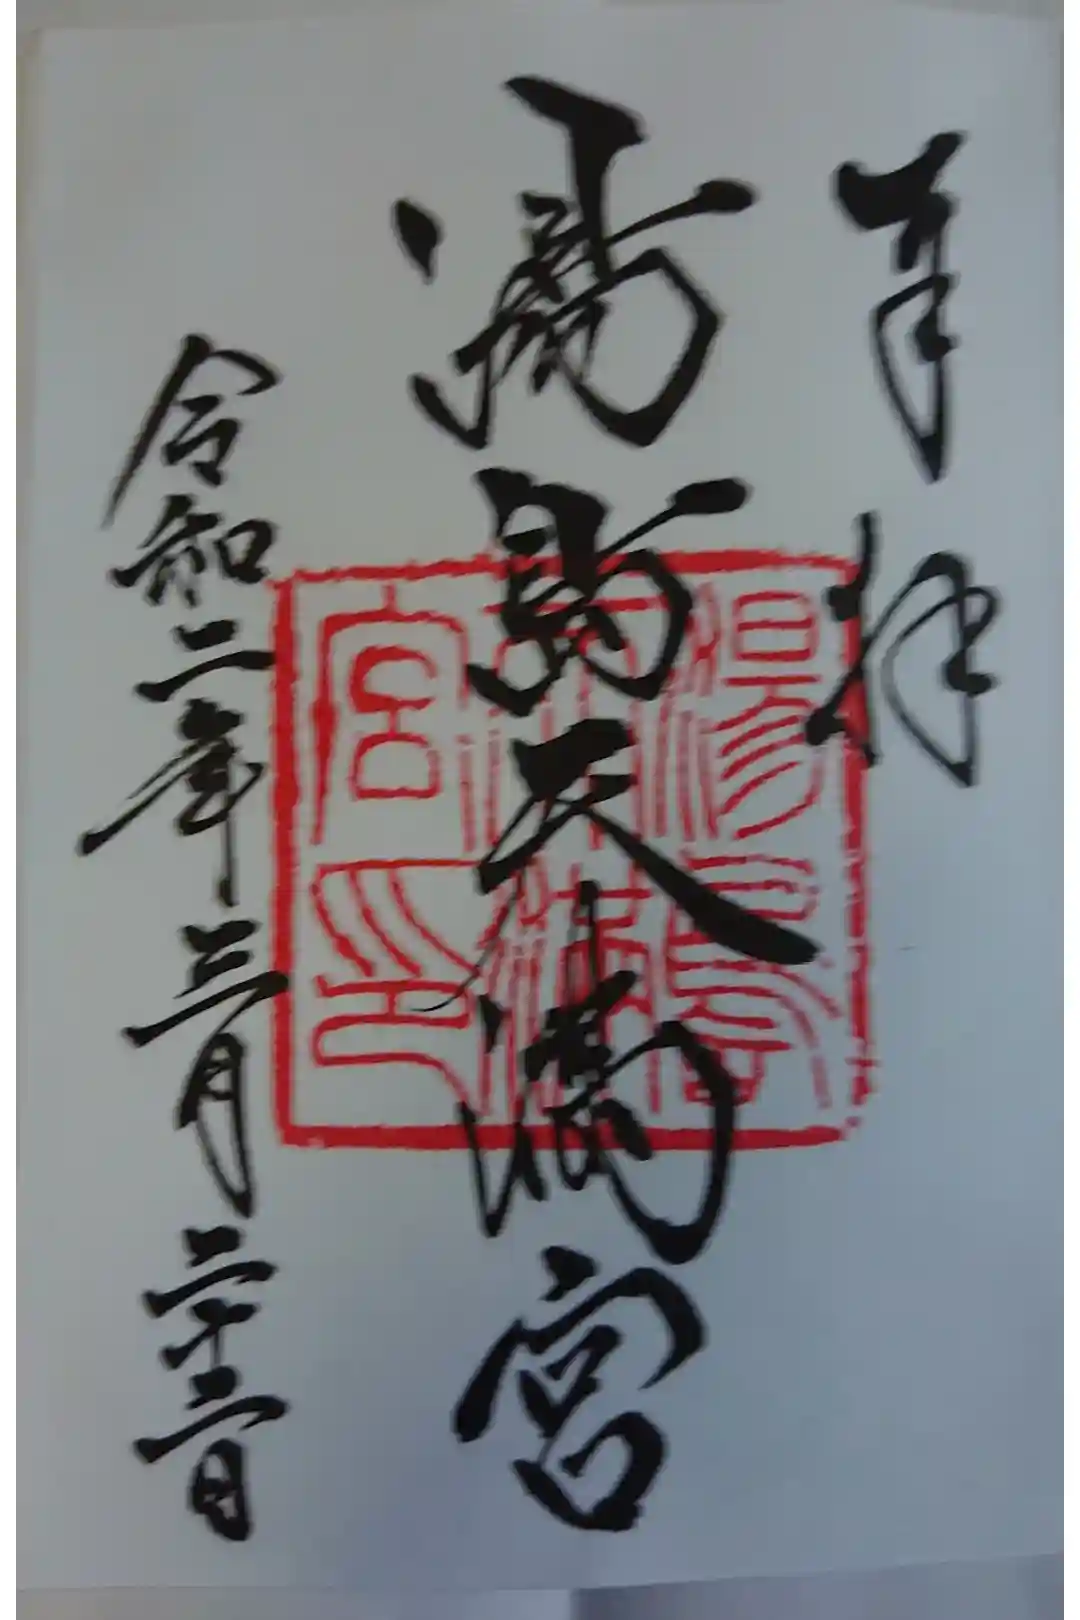 奉拝
湯島天満宮
湯島天満宮印
令和二年三月二十二日